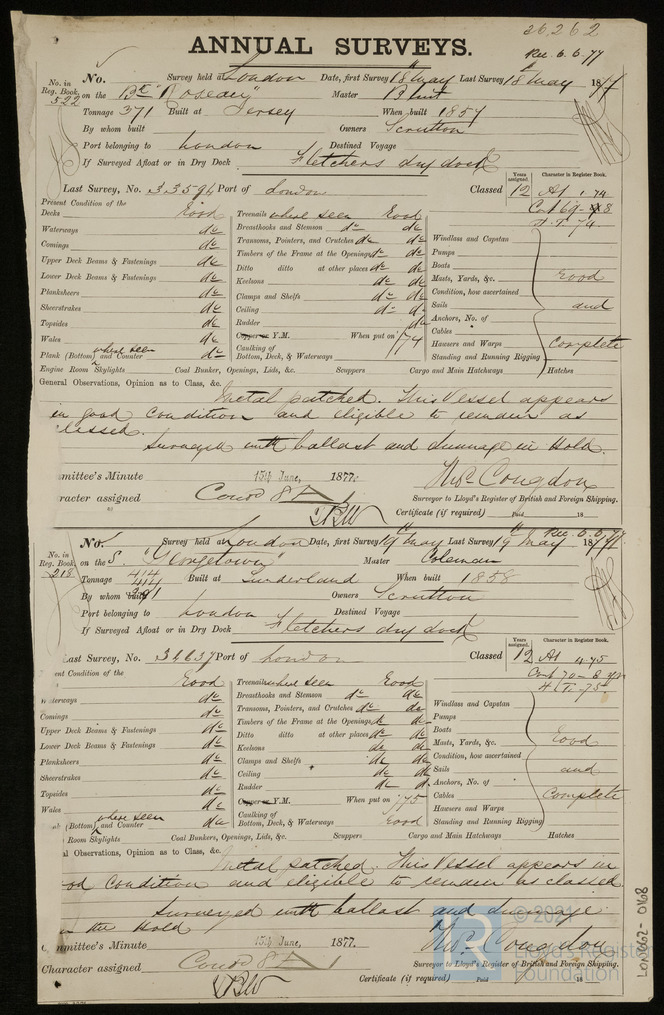 36262
ANNUAL SURVEYS.
Rec. 6.6.77
No. in Reg. Book. 522
No. Survey held at London Date, first Survey 18th May Last Survey 18 May 1877
on the Bk "Roseau" Master
Tonnage 371 Built at Jersey When built 1857
By whom built Owners Scrutton
Port belonging to London Destined Voyage
If Surveyed Afloat or in Dry Dock Fletchers dry dock
Years assigned. Character in Register Book.
Last Survey, No. 33594 Port of London Classed 12 A1 1.74
Cont 69-8
F.T. 74
Present Condition of the
Decks Good
Waterways do
Comings do
Upper Deck Beams & Fastenings do
Lower Deck Beams & Fastenings do
Planksheers do
Sheerstrakes do
Topsides do
Wales do
Plank (Bottom) and Counter where seen do
Engine Room Skylights Coal Bunker, Openings, Lids, &c. Scuppers Cargo and Main Hatchways Hatches
Treenails where seen Good
Breasthooks and Stemson do do
Transoms, Pointers, and Crutches do do
Timbers of the Frame at the Openings do do
Ditto ditto at other places do do
Keelsons do do
Clamps and Shelfs do do
Ceiling do do
Rudder do
Copper or Y.M. When put on /74
Caulking of Bottom, Deck, & Waterways
Windlass and Capstan
Pumps
Boats
Masts, Yards, &c.
Condition, how ascertained
Sails
Anchors, No. of
Cables
Hawsers and Warps
Standing and Running Rigging
Good
and
Complete
General Observations, Opinion as to Class, &c.
Metal patched. This Vessel appears
in good condition and eligible to remain as
classed.
Surveyed with ballast and dunnage in Hold.
mmittee's Minute 15th June, 1877.
Thos Congdon
racter assigned Cond 8 A 1
Surveyor to Lloyd's Register of British and Foreign Shipping.
Certificate (if required) Paid 18
Rec. 6.6.77.
No. in Reg. Book. 218
No. Survey held at London Date, first Survey 19th May Last Survey 19th May 1877
on the S. "Georgetown" Master Coleman
Tonnage 414 Built at Sunderland When built 1858
By whom built Owners Scrutton
Port belonging to London Destined Voyage
If Surveyed Afloat or in Dry Dock Fletchers dry dock
Years assigned. Character in Register Book.
Last Survey, No. 34637 Port of London Classed 12 A1 4.75
Cont 70-8 ym
H.T. 75
ent Condition of the
Good
Waterways do
Comings do
Upper Deck Beams & Fastenings do
Lower Deck Beams & Fastenings do
Planksheers do
Sheerstrakes do
Topsides do
Wales do
(Bottom) and Counter where seen do
Room Skylights Coal Bunkers, Openings, Lids, &c. Scuppers Cargo and Main Hatchways Hatches
Treenails where seen Good
Breasthooks and Stemson do do
Transoms, Pointers, and Crutches do do
Timbers of the Frame at the Openings do do
Ditto ditto at other places do do
Keelsons do do
Clamps and Shelfs do do
Ceiling do do
Rudder do do
Copper or Y.M. When put on /75
Caulking of Bottom, Deck, & Waterways Good
Windlass and Capstan
Pumps
Boats
Masts, Yards, &c.
Condition, how ascertained
Sails
Anchors, No. of
Cables
Hawsers and Warps
Standing and Running Rigging
Good
and
Complete
al Observations, Opinion as to Class, &c.
Metal patched. This Vessel appears in
od condition and eligible to remain as classed
Surveyed with ballast and dunnage
in the Hold
mmittee's Minute 15th June, 1877.
Thos Congdon
Character assigned Cond 8 A 1
Surveyor to Lloyd's Register of British and Foreign Shipping.
Certificate (if required) Paid 18
© 2021
Lloyd's Register
Foundation